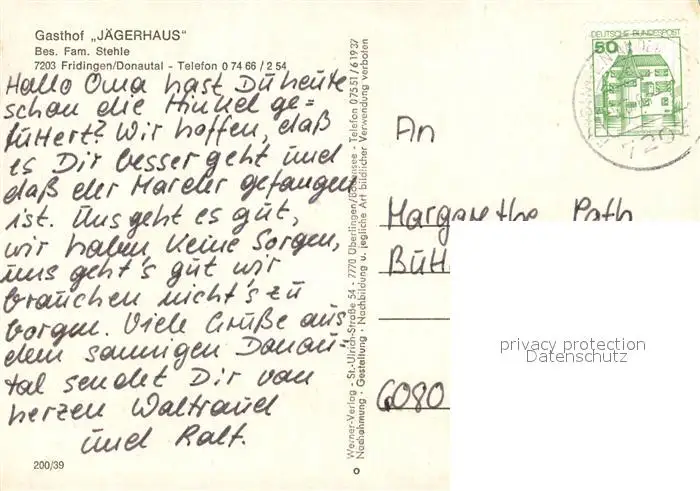 Gasthof „JÄGERHAUS"
Bes. Fam. Stehle
7203 Fridingen/Donautal - Telefon 0 74 66 / 2 54
Hallo Oma hast Du heute
schon die Hinkel ge=
füttert? Wir hoffen, daß
es Dir besser geht und
daß der Marder gefangen
ist. Uns geht es gut,
wir haben keine Sorgen,
uns geht's gut wir
brauchen nicht's zu
borgen. Viele Grüße aus
dem sonnigen Donau=
tal sendet Dir von
herzen Waltraud
und Ralf.
200/39
Werner-Verlag - St.-Ulrich-Straße 54 - 7770 Überlingen/Bodensee - Telefon 07551/61937
Nachahmung · Gestaltung · Nachbildung u. jegliche Art bildlicher Verwendung verboten
50
DEUTSCHE BUNDESPOST
720
An
Margarethe Rath
Bütt
6080
privacy protection
Datenschutz